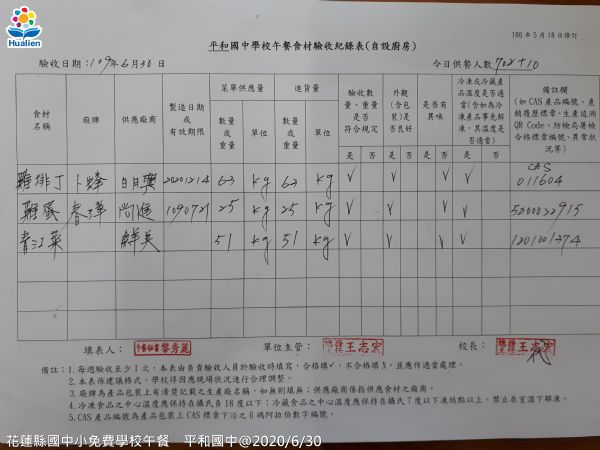 Hualien
106年5月18日修訂
平和國中學校午餐食材驗收紀錄表(自設廚房)
驗收日期:109年6月30日
今日供餐人數702+10
食材名稱
廠牌
供應廠商
製造日期或有效期限
菜單供應量
數量或重量
單位
進貨量
數量或重量
單位
驗收數量、重量是否符合規定
是 否
外觀(含包裝)是否良好
是 否
是否有異味
是 否
冷凍或冷藏產品溫度是否適當(含如為冷凍產品事先解凍,其溫度是否適當)
是 否
備註欄
(如CAS產品編號、產銷履歷標章、生產追溯QR Code、防檢局屠檢合格標章編號、異常狀況等)
雞排丁 卜蜂 20201214 63 kg 63 kg V V V CAS 011604
雞蛋 1090721 25 kg 25 kg V V V
青江菜 51 kg 51 kg V V V
填表人: 黎秀麗
單位主管: 王志宏
校長: 王志宏
備註:1.每週驗收至少1次,本表由負責驗收人員於驗收時填寫,合格填✓,不合格填X,並應作適當處理。
2.本表係建議格式,學校得因應現場狀況進行合理調整。
3.廠牌為產品包裝上有清楚記載之生產廠名稱,如無則填無;供應廠商係指供應食材之廠商。
4.冷凍食品之中心溫度應保持在攝氏自18度以下;冷藏食品之中心溫度應保持在攝氏7度以下凍結點以上。禁止在室溫下解凍。
5.CAS產品編號為產品包裝上CAS標章下沿之6碼阿拉伯數字編號。
花蓮縣國中小免費學校午餐 平和國中@2020/6/30